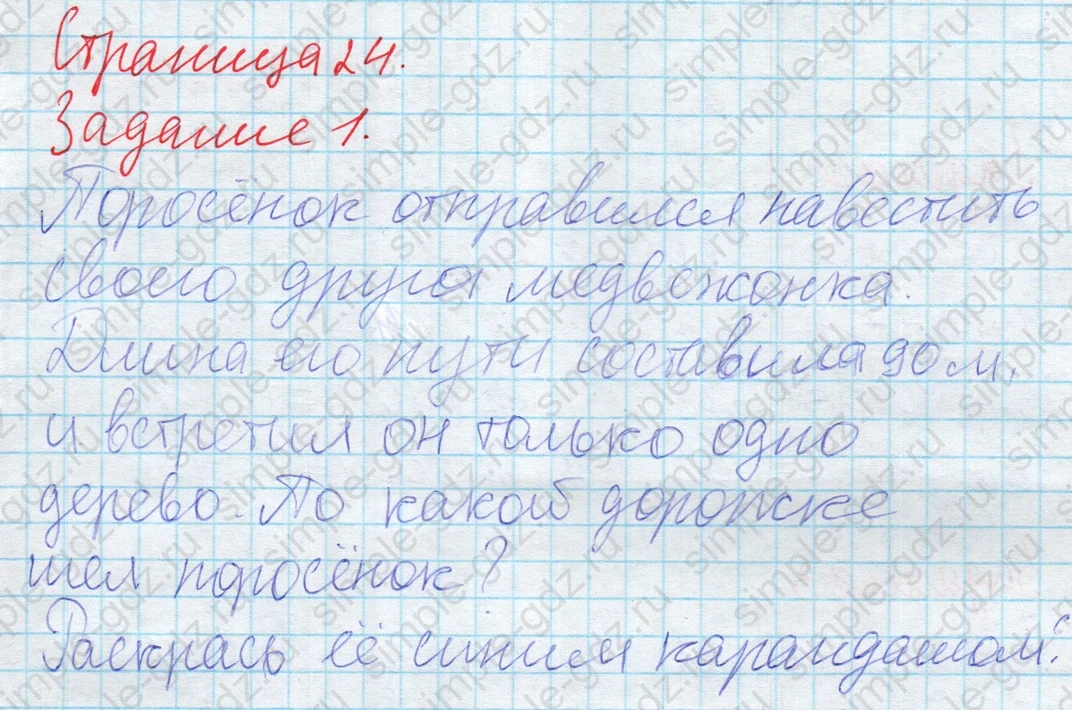 Страница 24.
Задание 1.
Поросёнок отправился навестить
своего друга медвежонка.
Длина его пути составила 90 м,
и встретил он только одно
дерево. По какой дорожке
шел поросёнок?
Раскрась её синим карандашом.
simple-gdz.ru